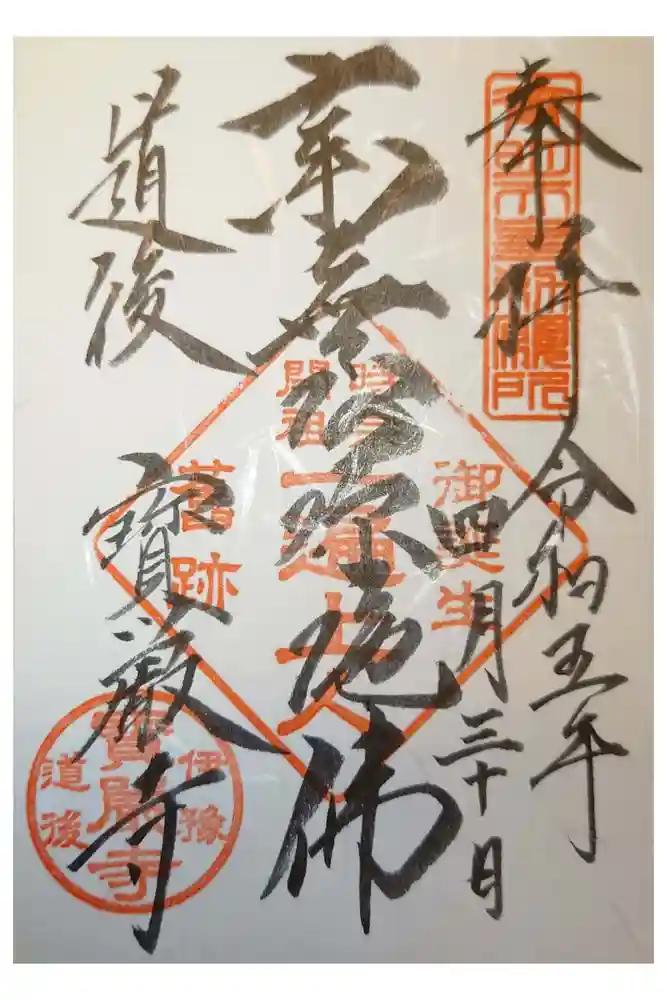 奉拝
令和五年
四月三十日
南無阿弥陀佛
道後
寶厳寺
時宗
開祖
一遍上人
御誕生
舊跡
伊豫
寶嚴寺
道後